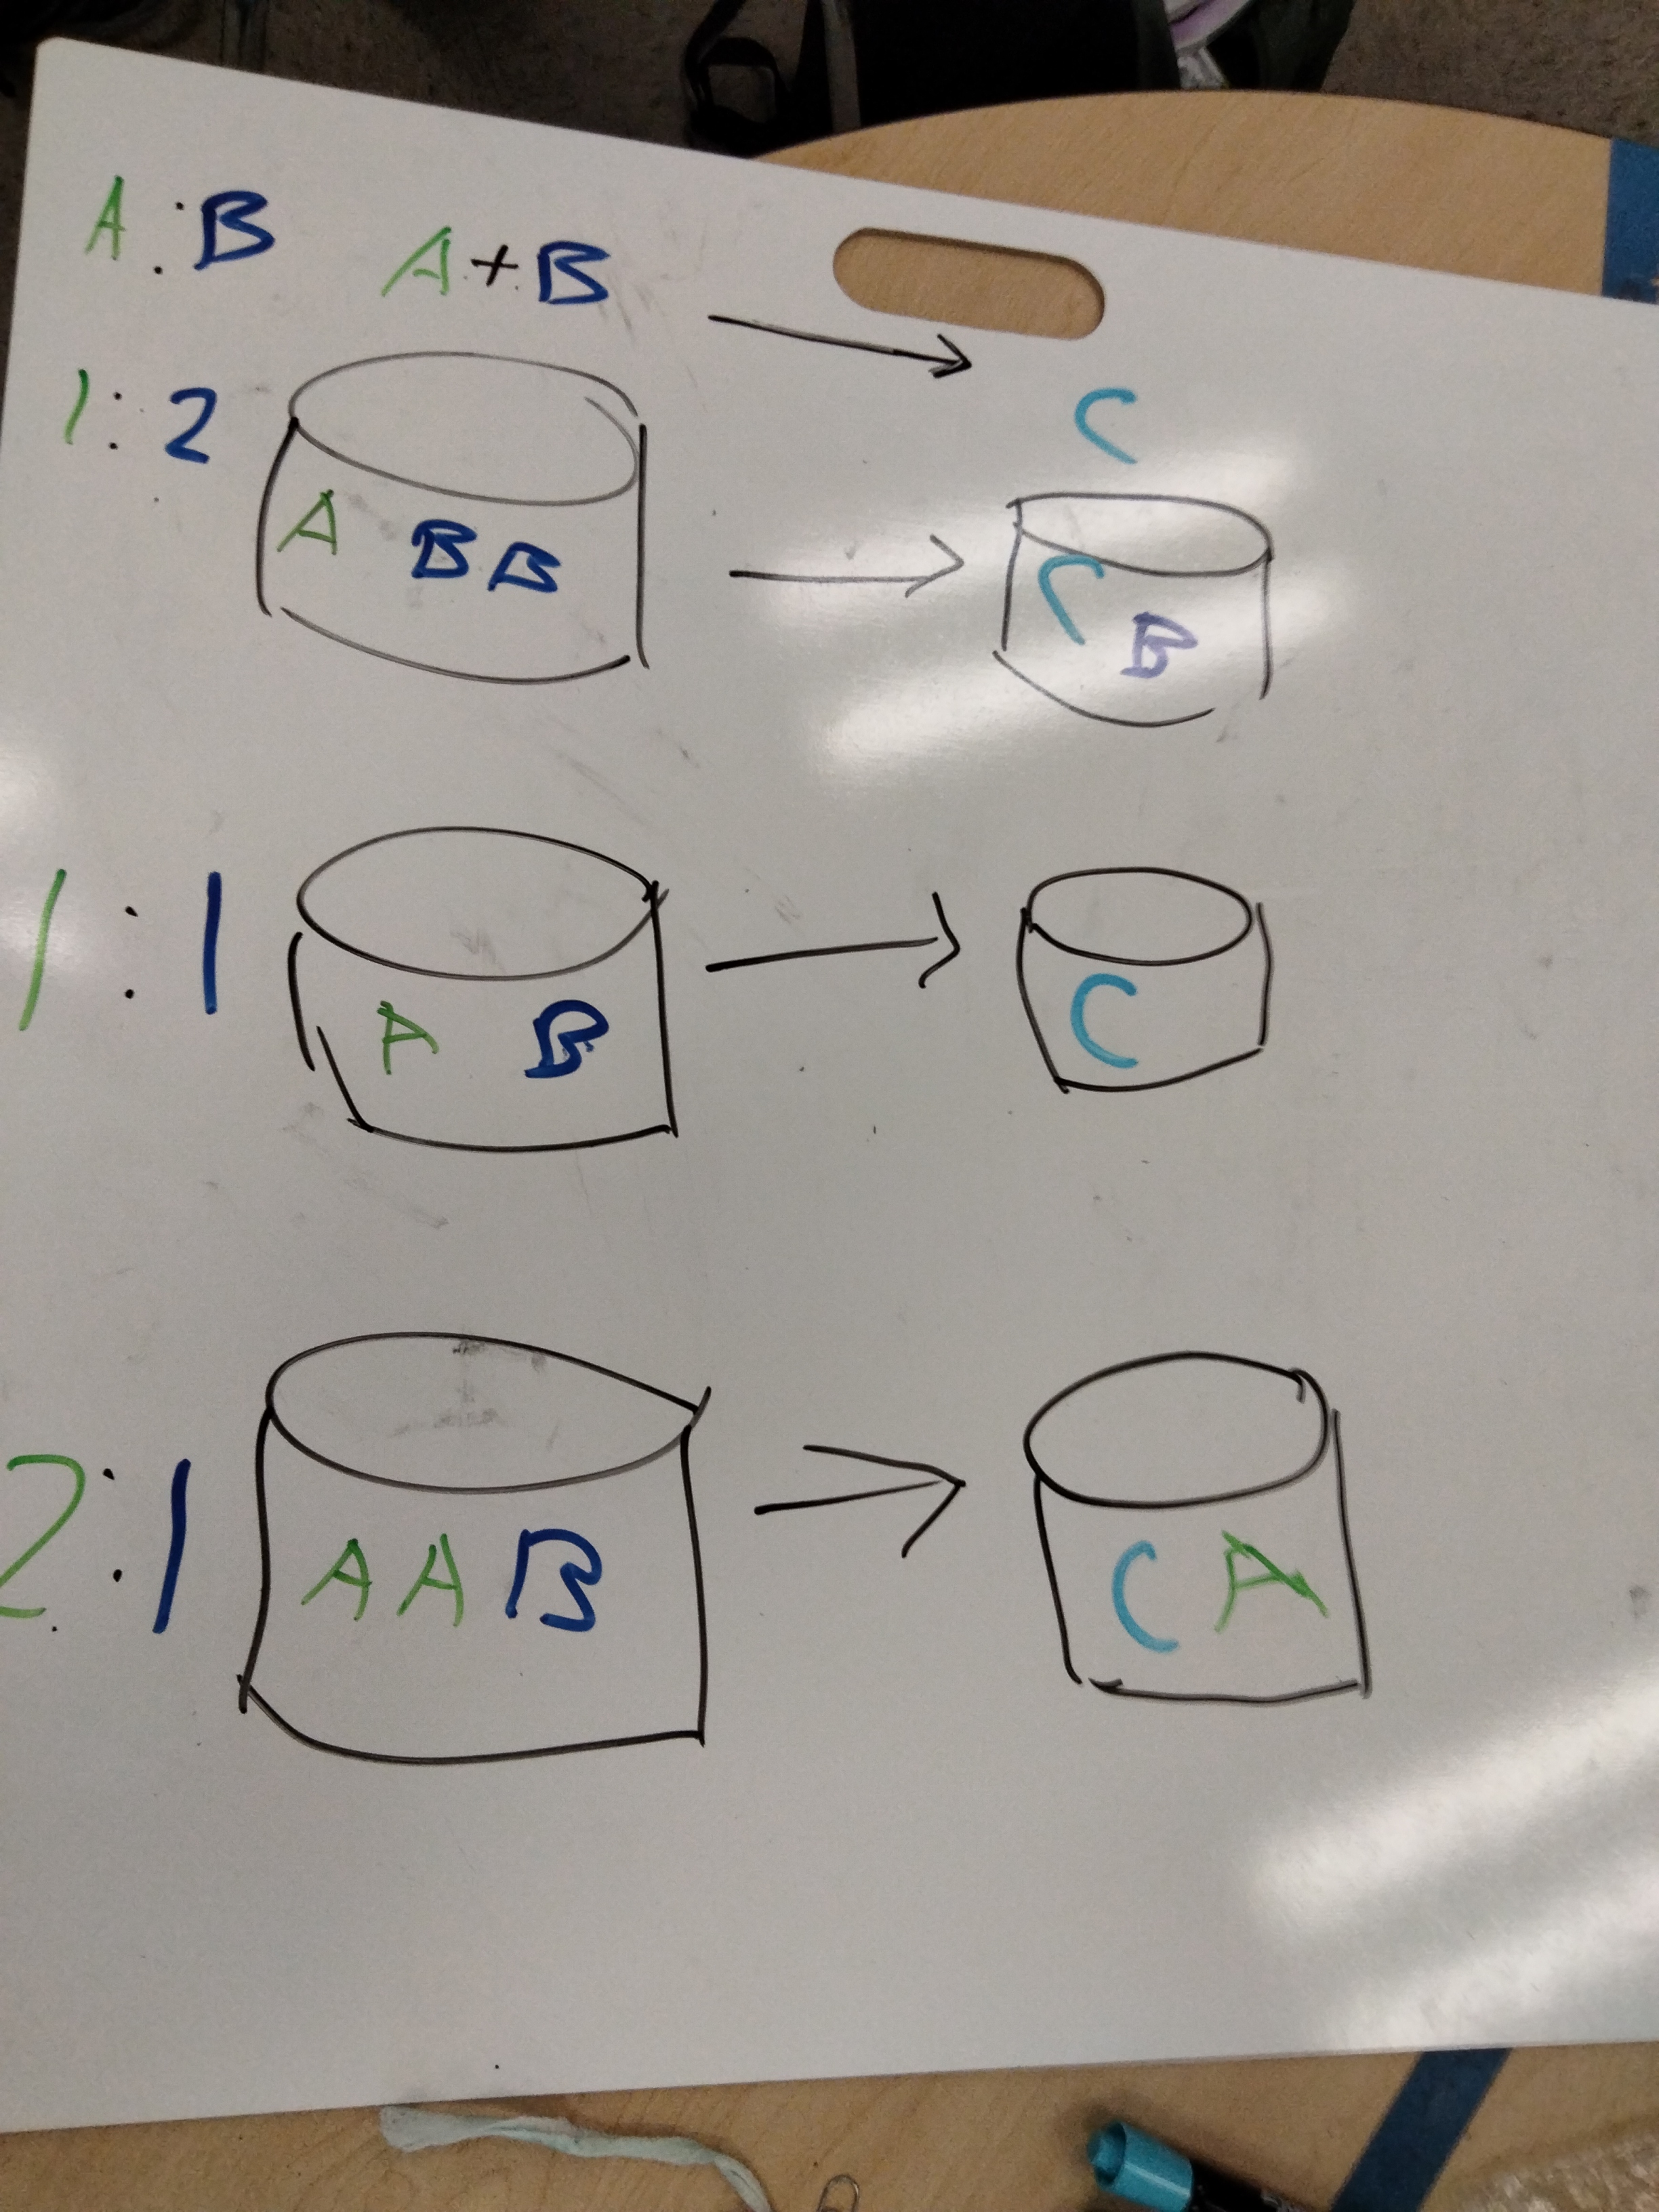 A : B A + B → C
1 : 2 A B B → C B
1 : 1 A B → C
2 : 1 A A B → C A